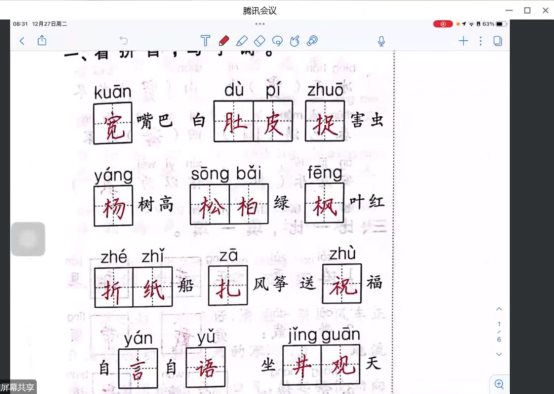 腾讯会议
08:31 12月27日周二
63%
一、看拼音，写字词。
kuān dù pí zhuō
宽嘴巴 白肚皮 捉害虫
yáng sōng bǎi fēng
杨树高 松柏绿 枫叶红
zhé zhǐ zā zhù
折纸船 扎风筝 送祝福
yán yǔ jǐng guān
自言自语 坐井观天
1/6
屏幕共享